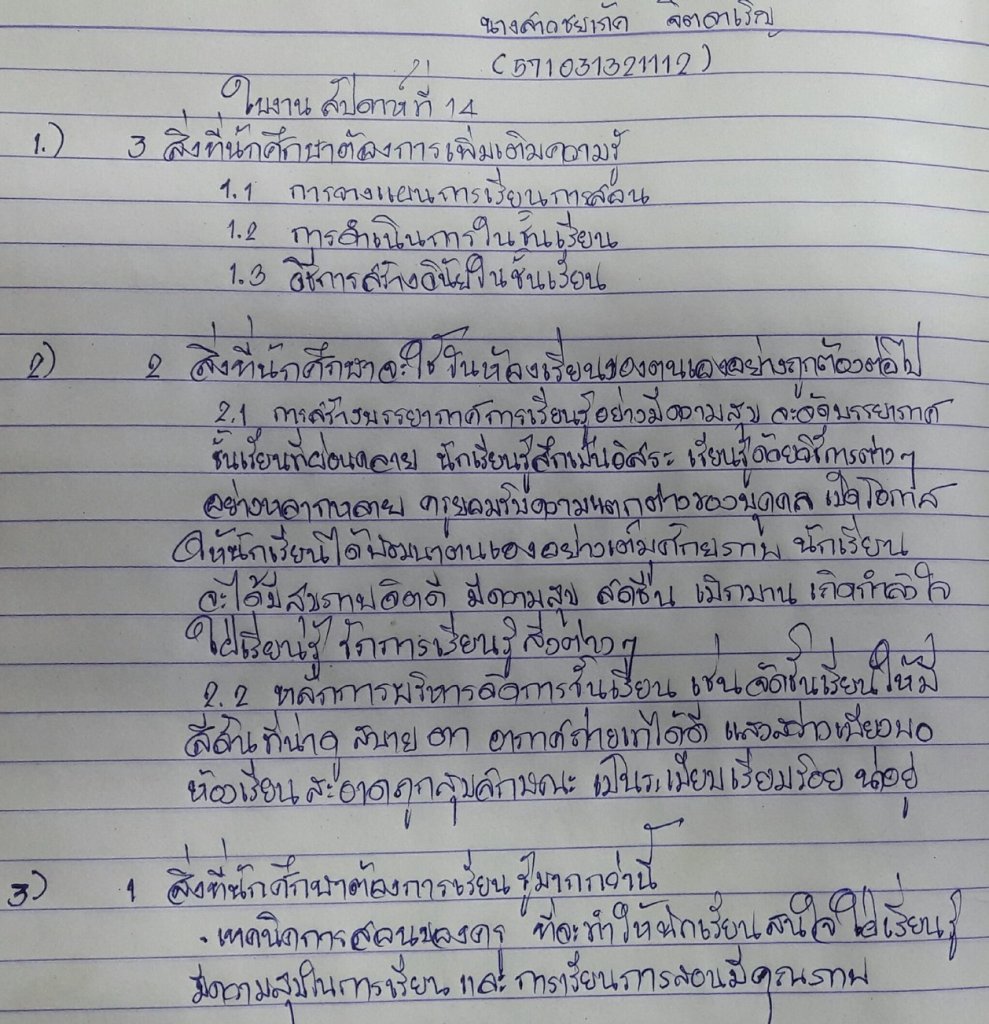 นางสาวชยาภัค จิตตาเริญ
(571031321112)
ใบงาน สัปดาห์ที่ 14
1.) 3 สิ่งที่นักศึกษาต้องการเพิ่มเติมความรู้
1.1 การวางแผนการเรียนการสอน
1.2 การดำเนินการในชั้นเรียน
1.3 วิธีการสร้างวินัยในชั้นเรียน
2) 2 สิ่งที่นักศึกษาจะใช้ในห้องเรียนของตนเองอย่างถูกต้องต่อไป
2.1 การสร้างบรรยากาศการเรียนรู้อย่างมีความสุข จะจัดบรรยากาศ
ชั้นเรียนที่ผ่อนคลาย นักเรียนรู้สึกเป็นอิสระ เรียนรู้ด้วยวิธีการต่างๆ
อย่างหลากหลาย ครูยอมรับความแตกต่างของบุคคล เปิดโอกาส
ให้นักเรียนได้พัฒนาตนเองอย่างเต็มศักยภาพ นักเรียน
จะได้มีสุขภาพจิตดี มีความสุข สดชื่น เบิกบาน เกิดกำลังใจ
ใฝ่เรียนรู้ รักการเรียนรู้สิ่งต่างๆ
2.2 หลักการบริหารจัดการชั้นเรียน เช่น จัดชั้นเรียนให้มี
สีสันที่น่าดู สบาย ตา อากาศถ่ายเทได้ดี แสงสว่างเพียงพอ
ห้องเรียน สะอาดถูกสุขลักษณะ เป็นระเบียบเรียบร้อย น่าอยู่
3) 1 สิ่งที่นักศึกษาต้องการเรียนรู้มากกว่านี้
. เทคนิคการสอนของครู ที่จะทำให้นักเรียนสนใจ ใฝ่เรียนรู้
มีความสุขในการเรียน และ การเรียนการสอนมีคุณภาพ